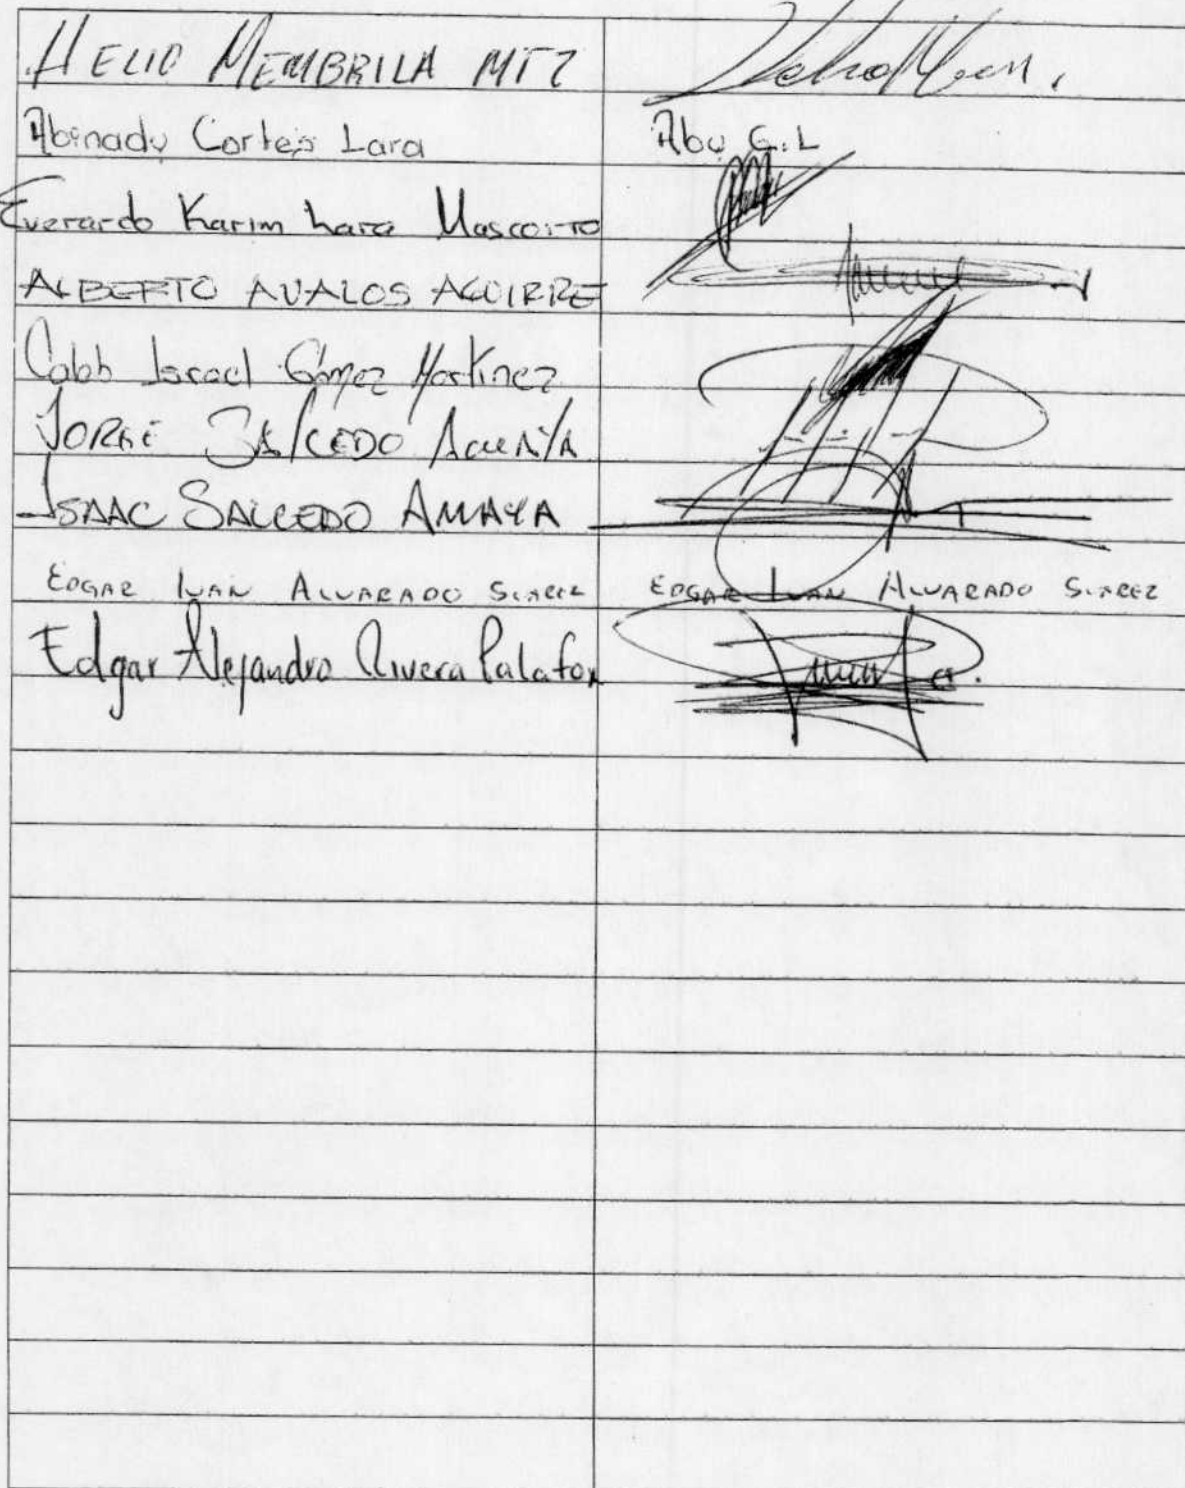 HELIO MEMBRILA MTZ
Abinady Cortes Lara Aby C.L
Everardo Karim Lara Mascorro
ALBERTO AVALOS AGUIRRE
Caleb Israel Gómez Martinez
JORGE SALCEDO ACUÑA
ISAAC SALCEDO AMAYA
EDGAR IVAN ALVARADO SUAREZ EDGAR IVAN ALVARADO SUAREZ
Edgar Alejandro Rivera Palafox